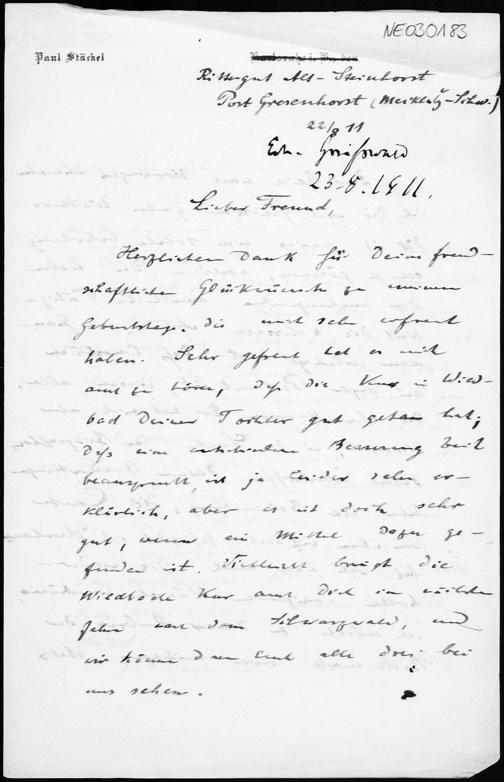 NE030183
Paul Stäckel
Karlsruhe i. Baden
Rittergut Alt-Steinhorst
Post Gresenhorst (Mecklbg-Schw.)
22/8 11
Erh. Greifswald
23.8.1911.
Lieber Freund,
Herzlichen Dank für Deine freund-
schaftlichen Glückwünsche zu meinem
Geburtstage, die mich sehr erfreut
haben. Sehr gefreut hat es mich
auch zu hören, daß die Kur in Wild-
bad Deiner Tochter gut getan hat;
daß eine entschiedene Besserung Zeit
beansprucht, ist ja leider sehr er-
klärlich, aber es ist doch sehr
gut, wenn ein Mittel dazu ge-
funden ist. Vielleicht bringt die
Wildbader Kur auch Dich im nächsten
Jahre nach dem Schwarzwald, und
wir können dann Euch alle drei bei
uns sehen.